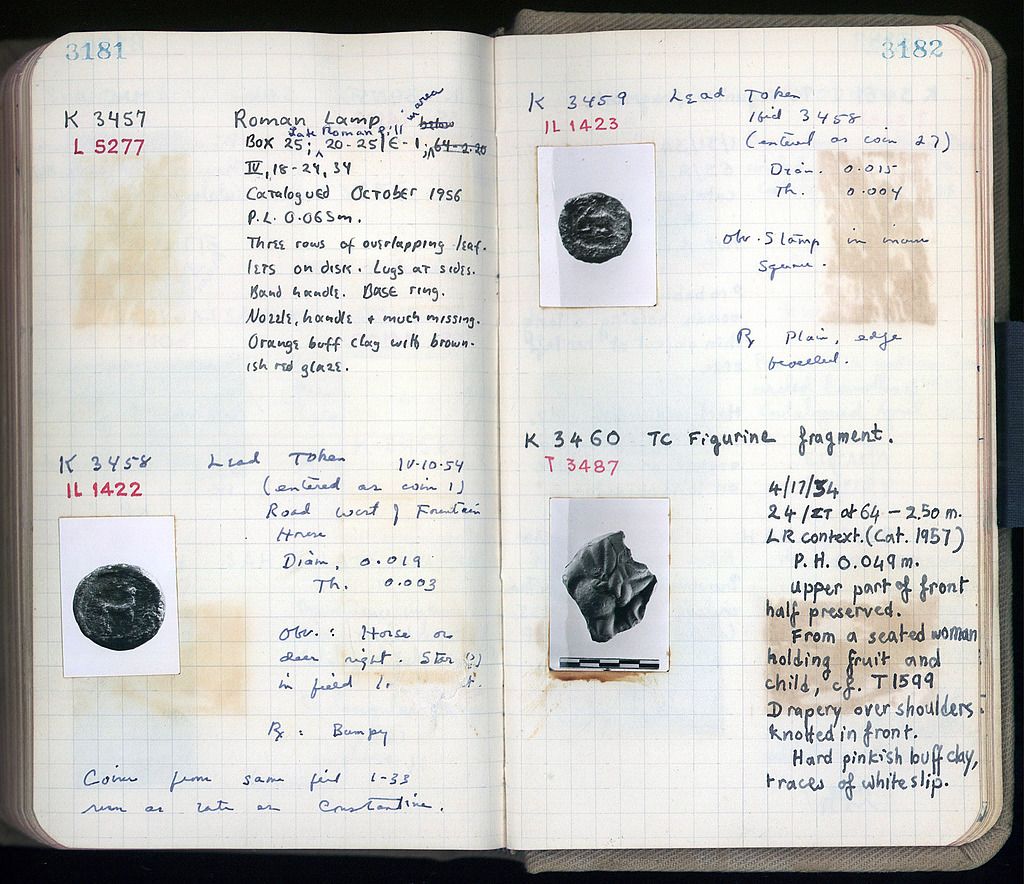 3181
K 3457 Roman Lamp in area below
L 5277
Late Roman fill
Box 25; 20-25/E-1; 64-2.20
IV, 18-24, 34
Catalogued October 1956
P.L. 0.065m.
Three rows of overlapping leaf-
lets on disk. Lugs at sides.
Band handle. Base ring.
Nozzle, handle + much missing.
Orange buff clay with brown-
ish red glaze.
K 3458 Lead Token
IL 1422
(entered as coin 1)
Road west of Fountain
House
Diam. 0.019
Th. 0.003
Obv.: Horse or
deer right. Star (?)
in field l.
R: Bumpy
Coins from same fill 1-33
run as late as Constantine.
3182
K 3459 Lead Token
IL 1423
Ibid 3458
(entered as coin 27)
Diam. 0.015
Th. 0.004
Obv. Stamp in incuse
Square.
R Plain, edge
bevelled.
K 3460 TC Figurine fragment.
T 3487
4/17/34
24/ΣΤ at 64 – 2.50 m.
LR context. (Cat. 1957)
P.H. 0.049 m.
Upper part of front
half preserved.
From a seated woman
holding fruit and
child, cf. T 1599
Drapery over shoulders
knotted in front.
Hard pinkish buff clay,
traces of white slip.